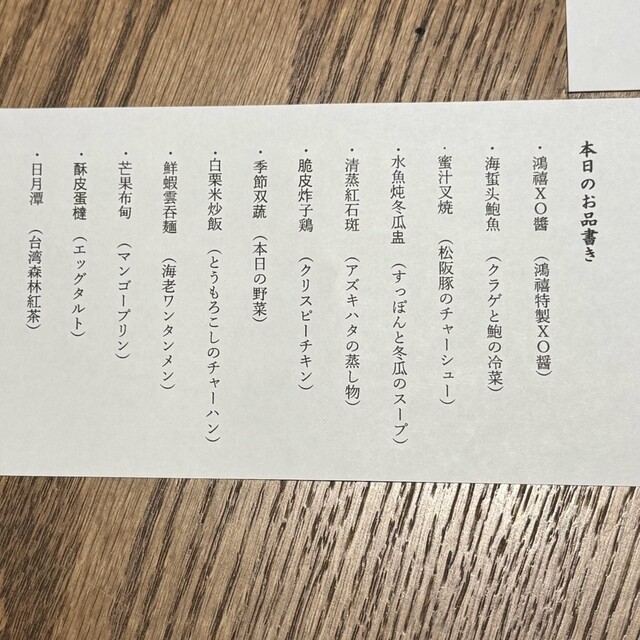 本日のお品書き
・鴻禧XO醬 (鴻禧特製XO醤)
・海蜇头鮑魚 (クラゲと鮑の冷菜)
・蜜汁叉焼 (松阪豚のチャーシュー)
・水魚炖冬瓜盅 (すっぽんと冬瓜のスープ)
・清蒸紅石斑 (アズキハタの蒸し物)
・脆皮炸子鶏 (クリスピーチキン)
・季節双蔬 (本日の野菜)
・白粟米炒飯 (とうもろこしのチャーハン)
・鮮蝦雲吞麺 (海老ワンタンメン)
・芒果布甸 (マンゴープリン)
・酥皮蛋撻 (エッグタルト)
・日月潭 (台湾森林紅茶)